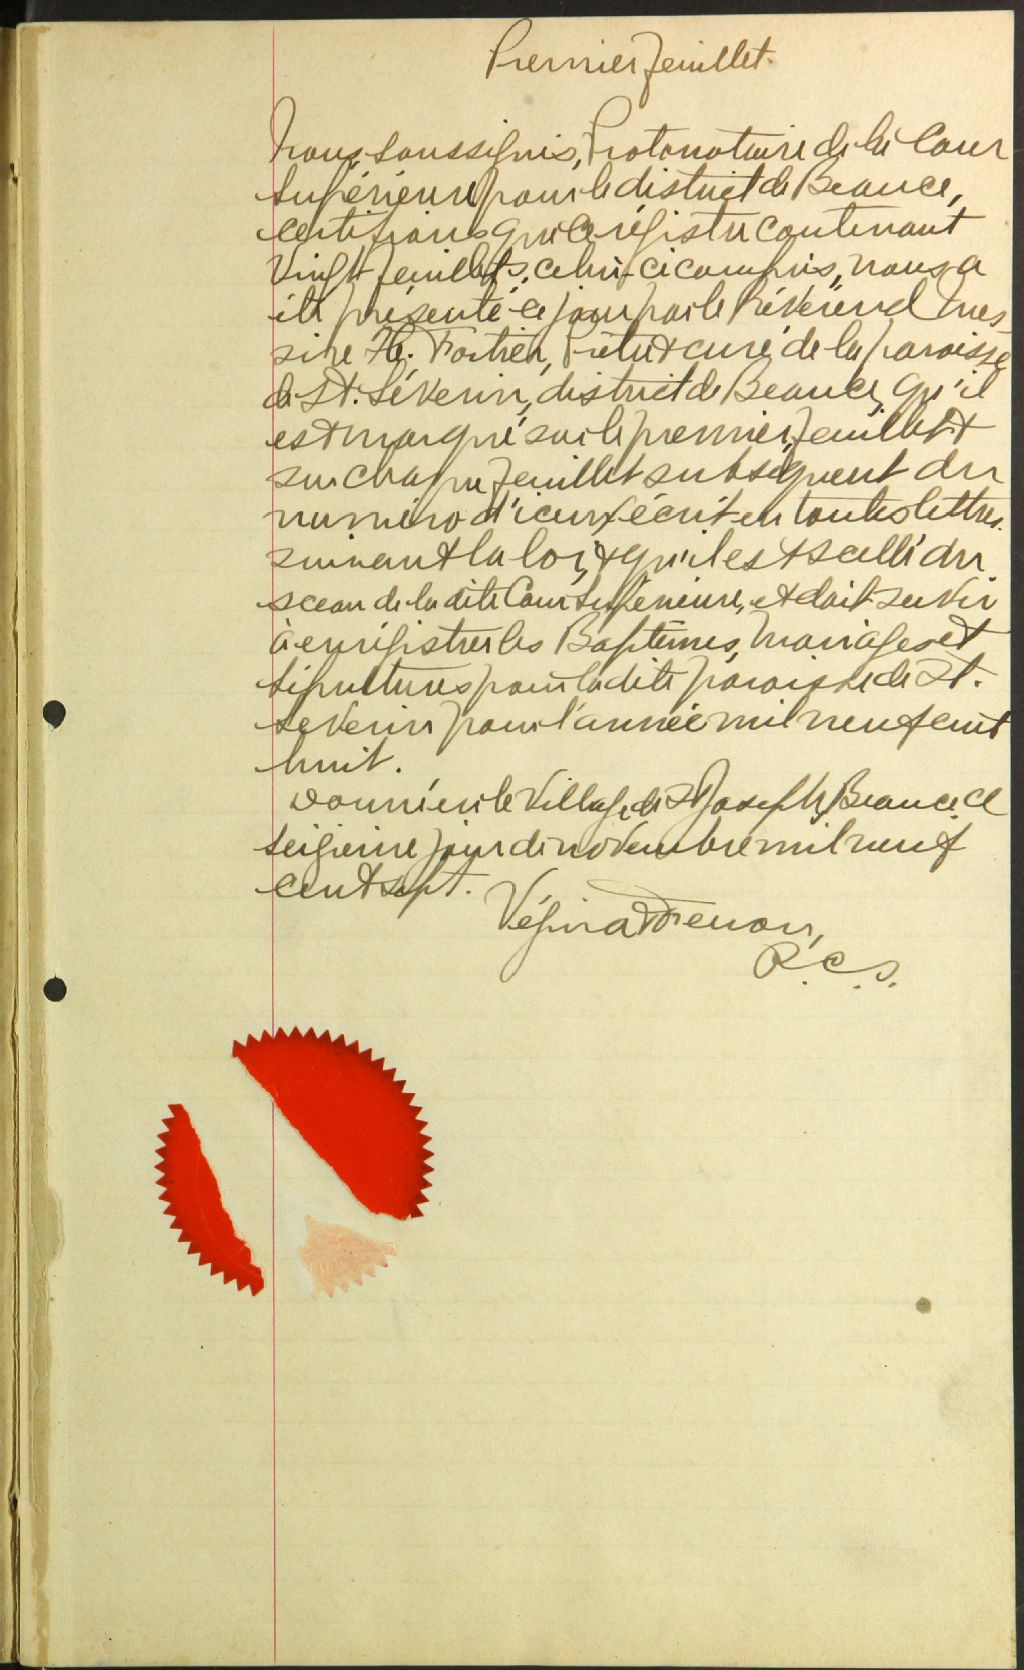 Premier feuillet.
Nous, soussignés, Protonotaire de la Cour
Supérieure pour le district de Beauce,
certifions que ce régistre contenant
vingt feuillets, celui-ci compris, nous a
été présenté ce jour par le Révérend Mes-
sire Fortier, Prêtre & curé de la paroisse
de St. Séverin, district de Beauce, qu'il
est marqué sur le premier feuillet &
sur chaque feuillet subséquent du
numéro d'iceux écrit en toutes lettres
suivant la loi, & qu'il est scellé du
sceau de la dite Cour Supérieure, et doit servir
à enrégistrer les Baptêmes, Mariages et
Sépultures pour la dite paroisse de St.
Séverin pour l'année mil neuf cent
huit.
Donné en le Village de St Joseph, Beauce, ce
seizième jour de novembre mil neuf
cent sept.
Vézina &
P.C.S.